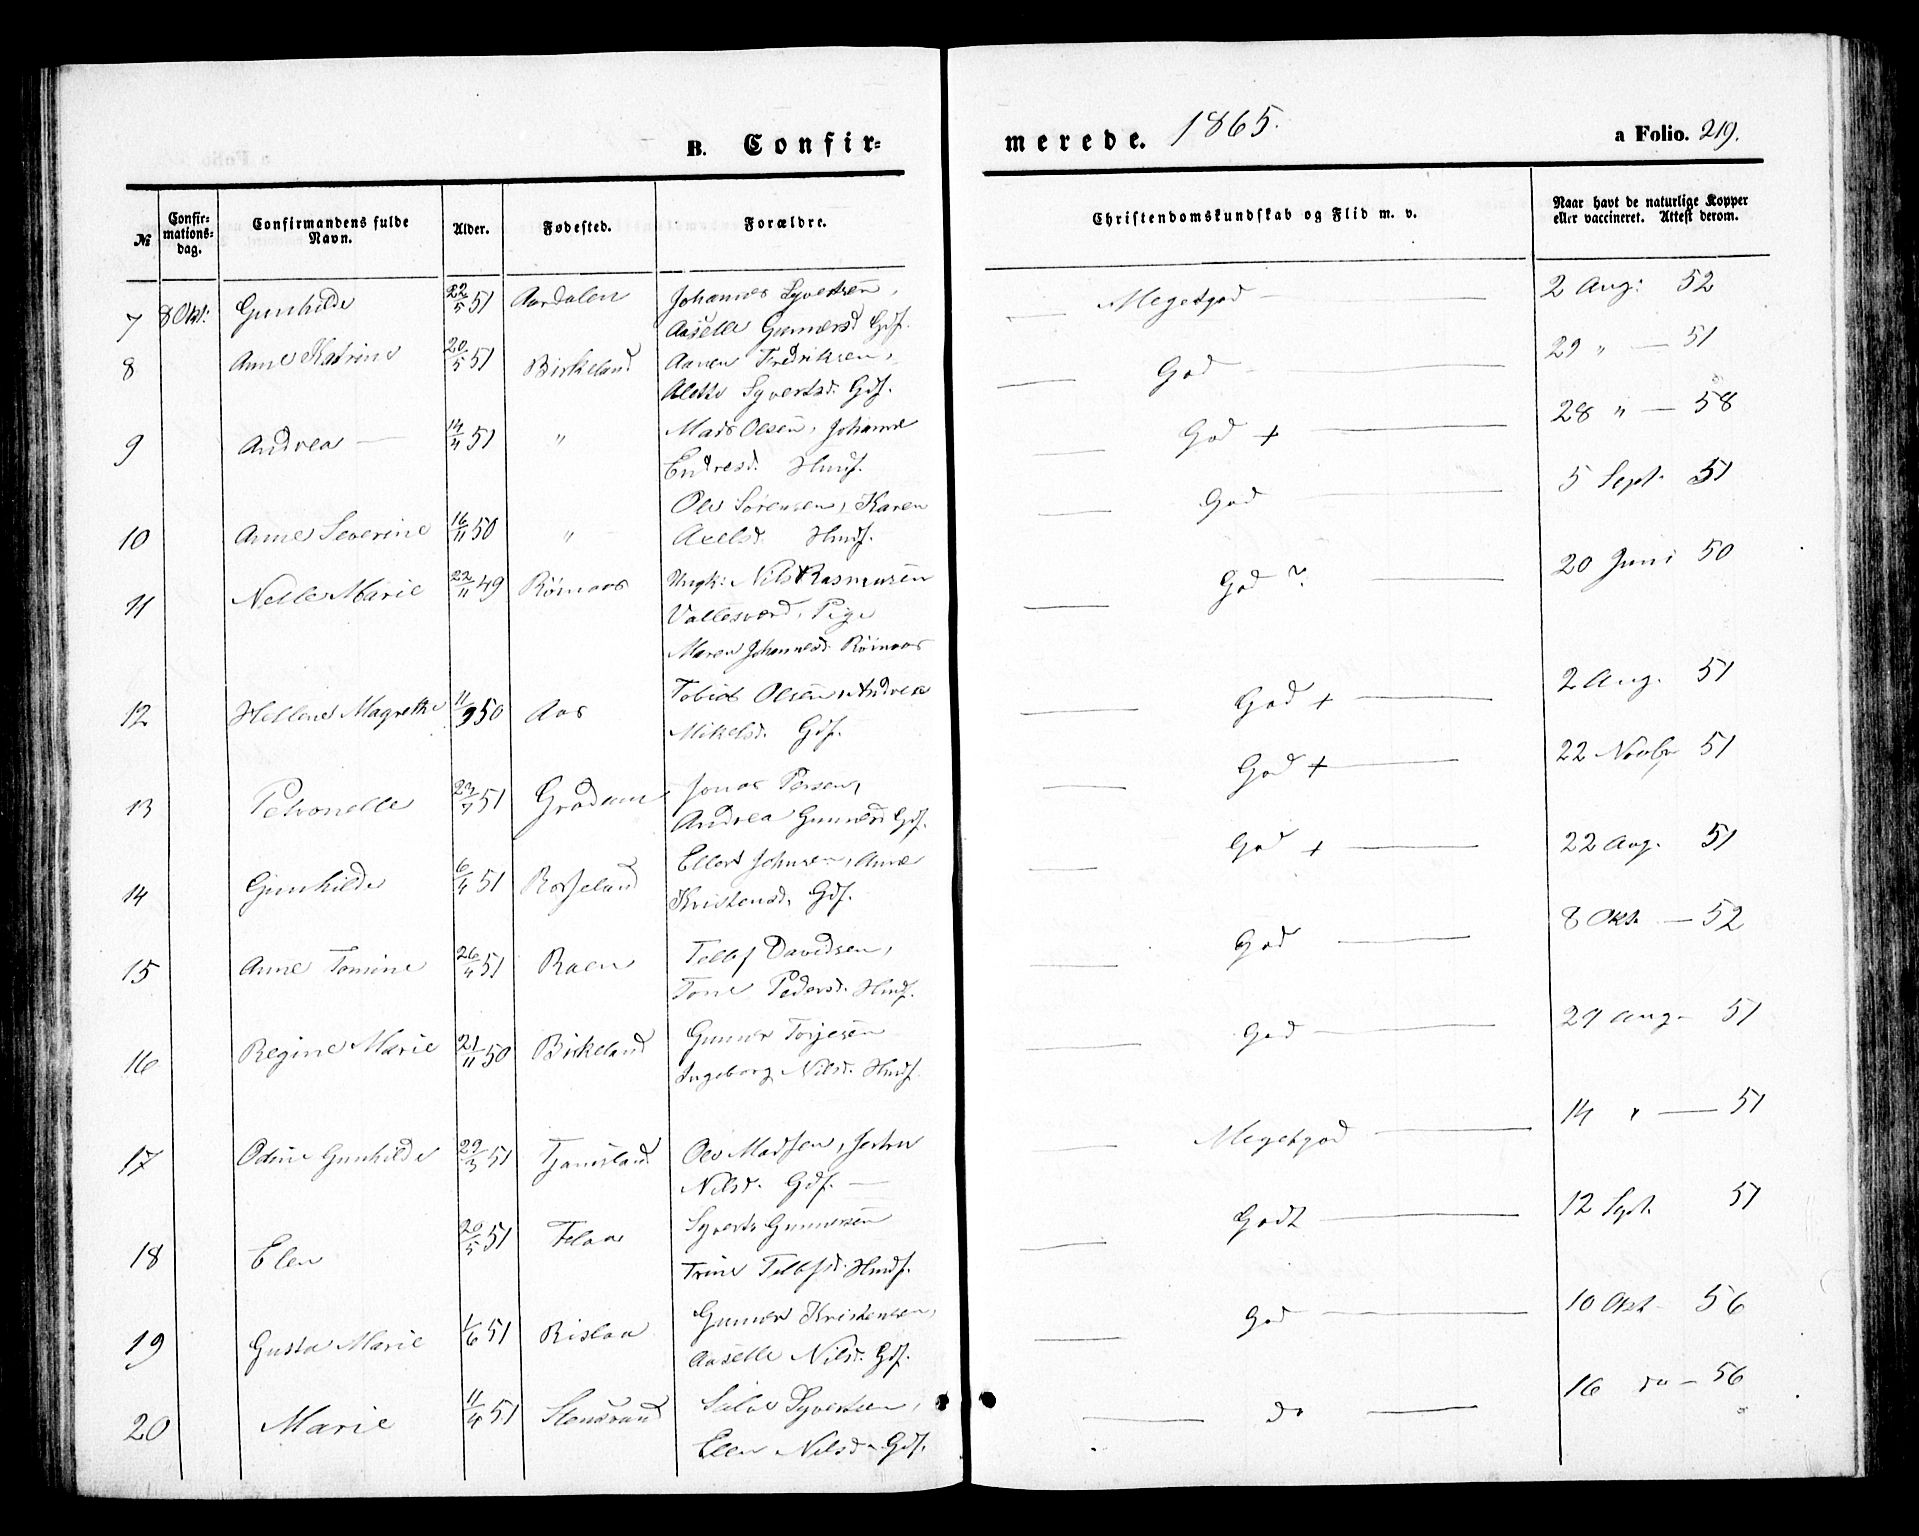 B. Confir-
merede. 1865.
a Folio. 219.
№
Confir-
mations-
dag.
Confirmandens fulde
Navn.
Alder.
Fødested.
Forældre.
Christendomskundskab og Flid m. v.
Naar havt de naturlige Kopper
eller vaccineret. Attest derom.
7 8 Okt: Gunhilde 22/5 51 Aardalen Johannes Syvertsen,
Aaselle Gunnersd. Gdf. Megetgod 2 Aug: 52
8 Anne Katrine 20/5 51 Birkeland Aanen Fredriksen,
Alette Syvertsd. Gdf. God 29 " 51
9 Andrea 14/4 51 " Mads Olsen, Johanne
Endresd. Husf. God + 28 " 58
10 Anne Severine 16/11 50 " Ole Sørensen, Karen
Axelsd. Husf. God 5 Sept. 51
11 Nelle Marie 22/11 49 Rømaas Ungk: Nils Rasmussen
Vallesværd, Pige
Maren Johannesd. Rømaas God ? 20 Juni 50
12 Hellene Magrethe 11/9 50 Aas Tobias Olsen, Andrea
Mikelsd. Gdf. God + 2 Aug. 51
13 Petronelle 51 Jonas Persen,
Andrea Gunnersd Gdf. God + 22 Novbr 51
14 Gunhilde 6/4 51 Rosseland Ellert Johnsen, Anne
Kristensd. Gdf. God + 22 Aug. 51
15 Anne Tomine 26/4 51 Raen Tellef Davidsen,
Tone Pedersd. Husf. God 8 Okt. 52
16 Regine Marie 21/11 50 Birkeland Gunner Torjesen
Ingeborg Nilsd. Husf. God 29 Aug. 51
17 Odine Gunhilde 29/3 51 Tjamsland Ole Madsen,
Nilsd. Gdf. Megetgod 14 " 51
18 Elen 20/5 51 Flaa Syvert Gunnersen
Trine Tellefsd. Husf. Godt 12 Sept. 51
19 Gusta Marie 1/6 51 Rislaa Gunner Kristensen,
Aaselle Nilsd. Gdf. God 10 Okt 56
20 Marie 11/4 51 Salve Syvertsen,
Elen Nilsd. Gdf. do 16 do 56